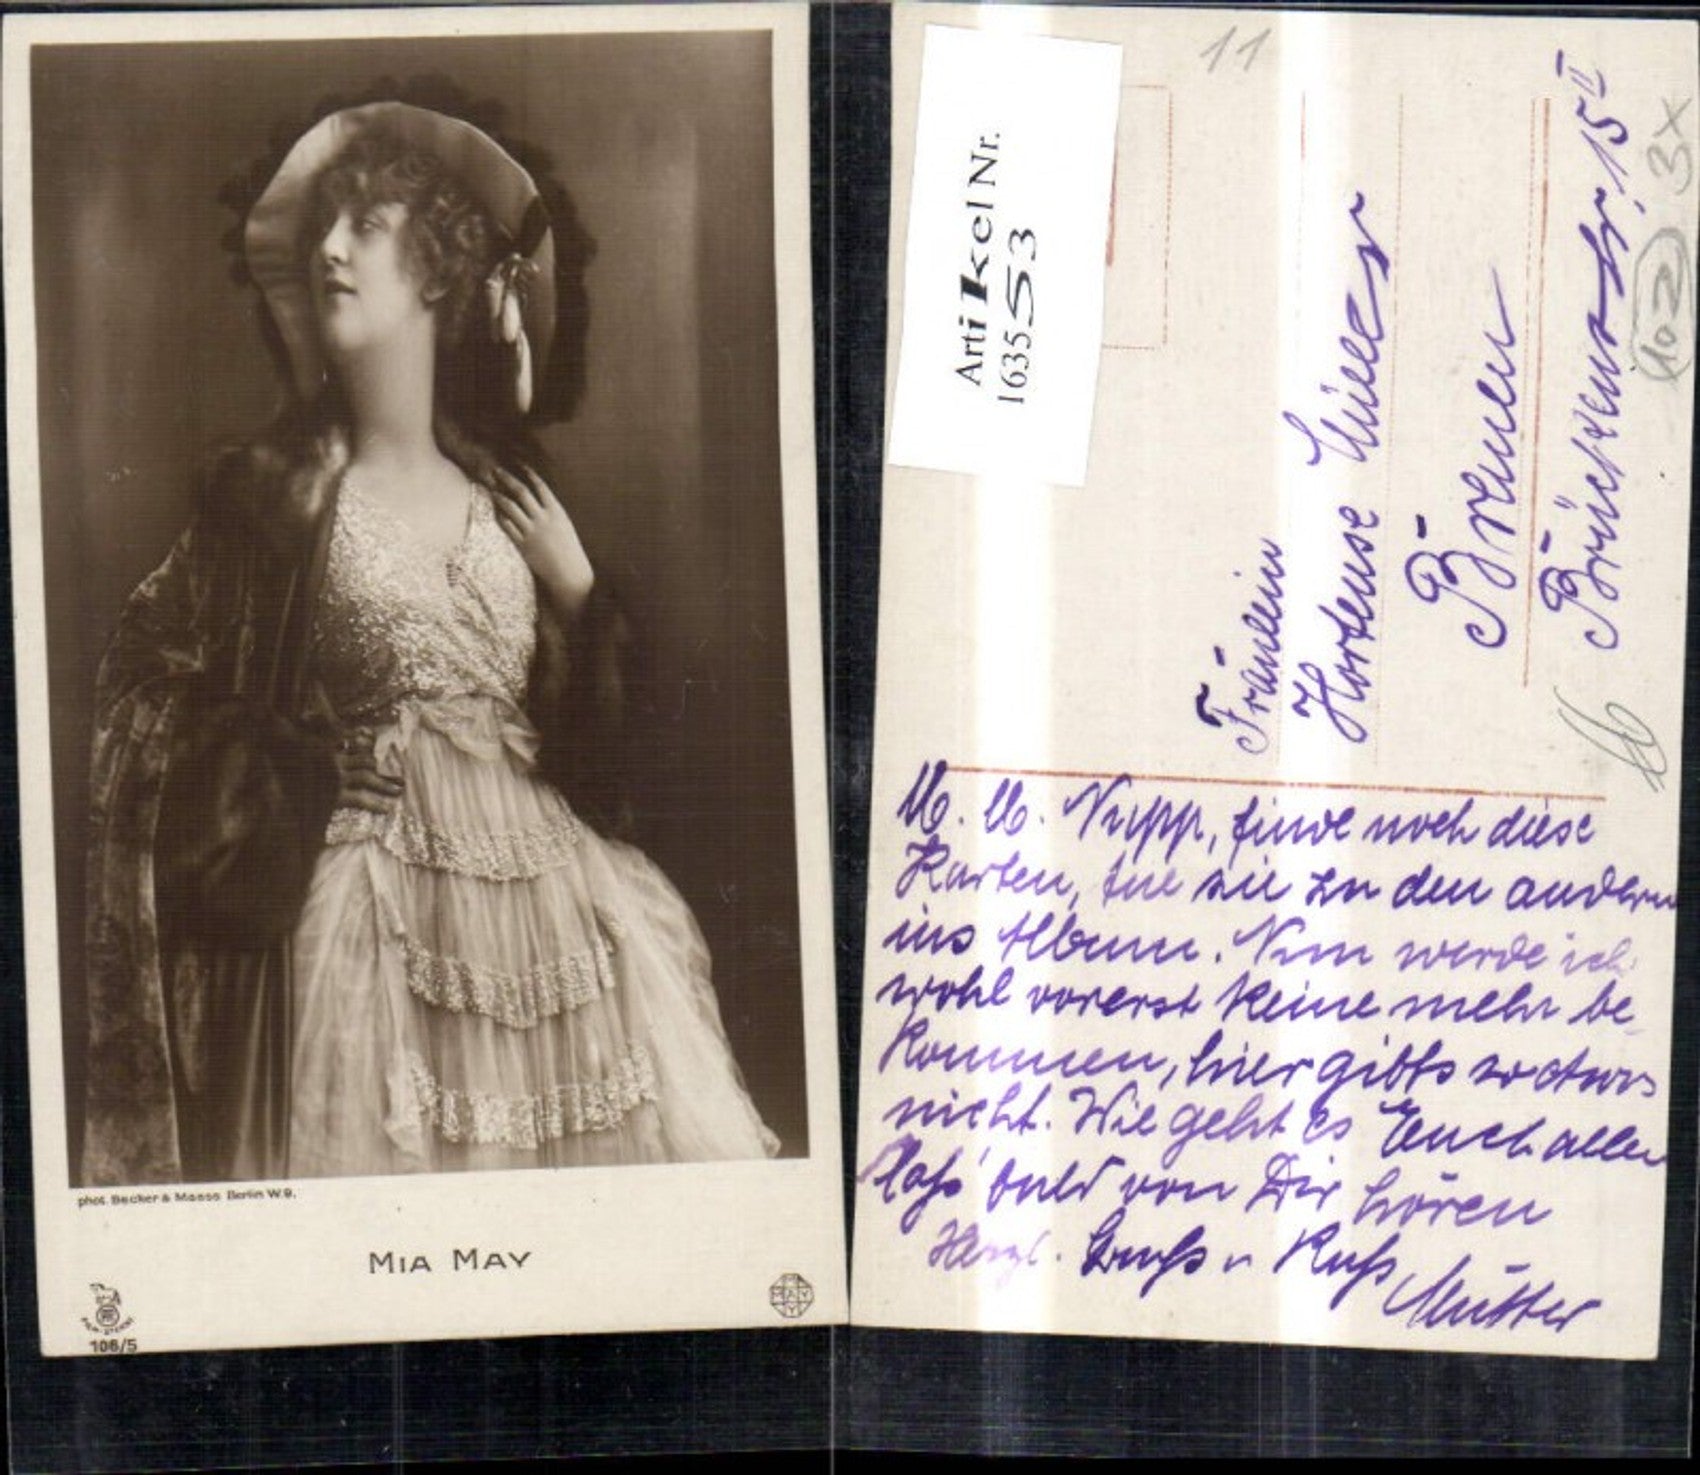 phot. Becker & Maass Berlin W.9.
MIA MAY
106/5
Artikel Nr.
163553
11
Fräulein
Hortense Müller
Bremen
Brückenstr. 15 II
102
3x
M. M. Nupp, finde noch diese
Karten, tue sie zu den andern
ins Album. Nun werde ich
wohl vorerst keine mehr be-
kommen, hier gibts so etwas
nicht. Wie geht es Euch allen
lass' bald von Dir hören
Herzl. Gruß u Kuß
Mutter